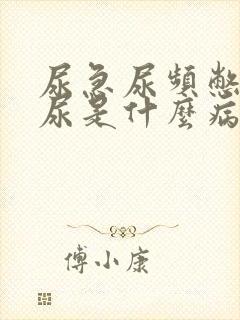 尿急尿頻憋
尿是什麼病
傅小康